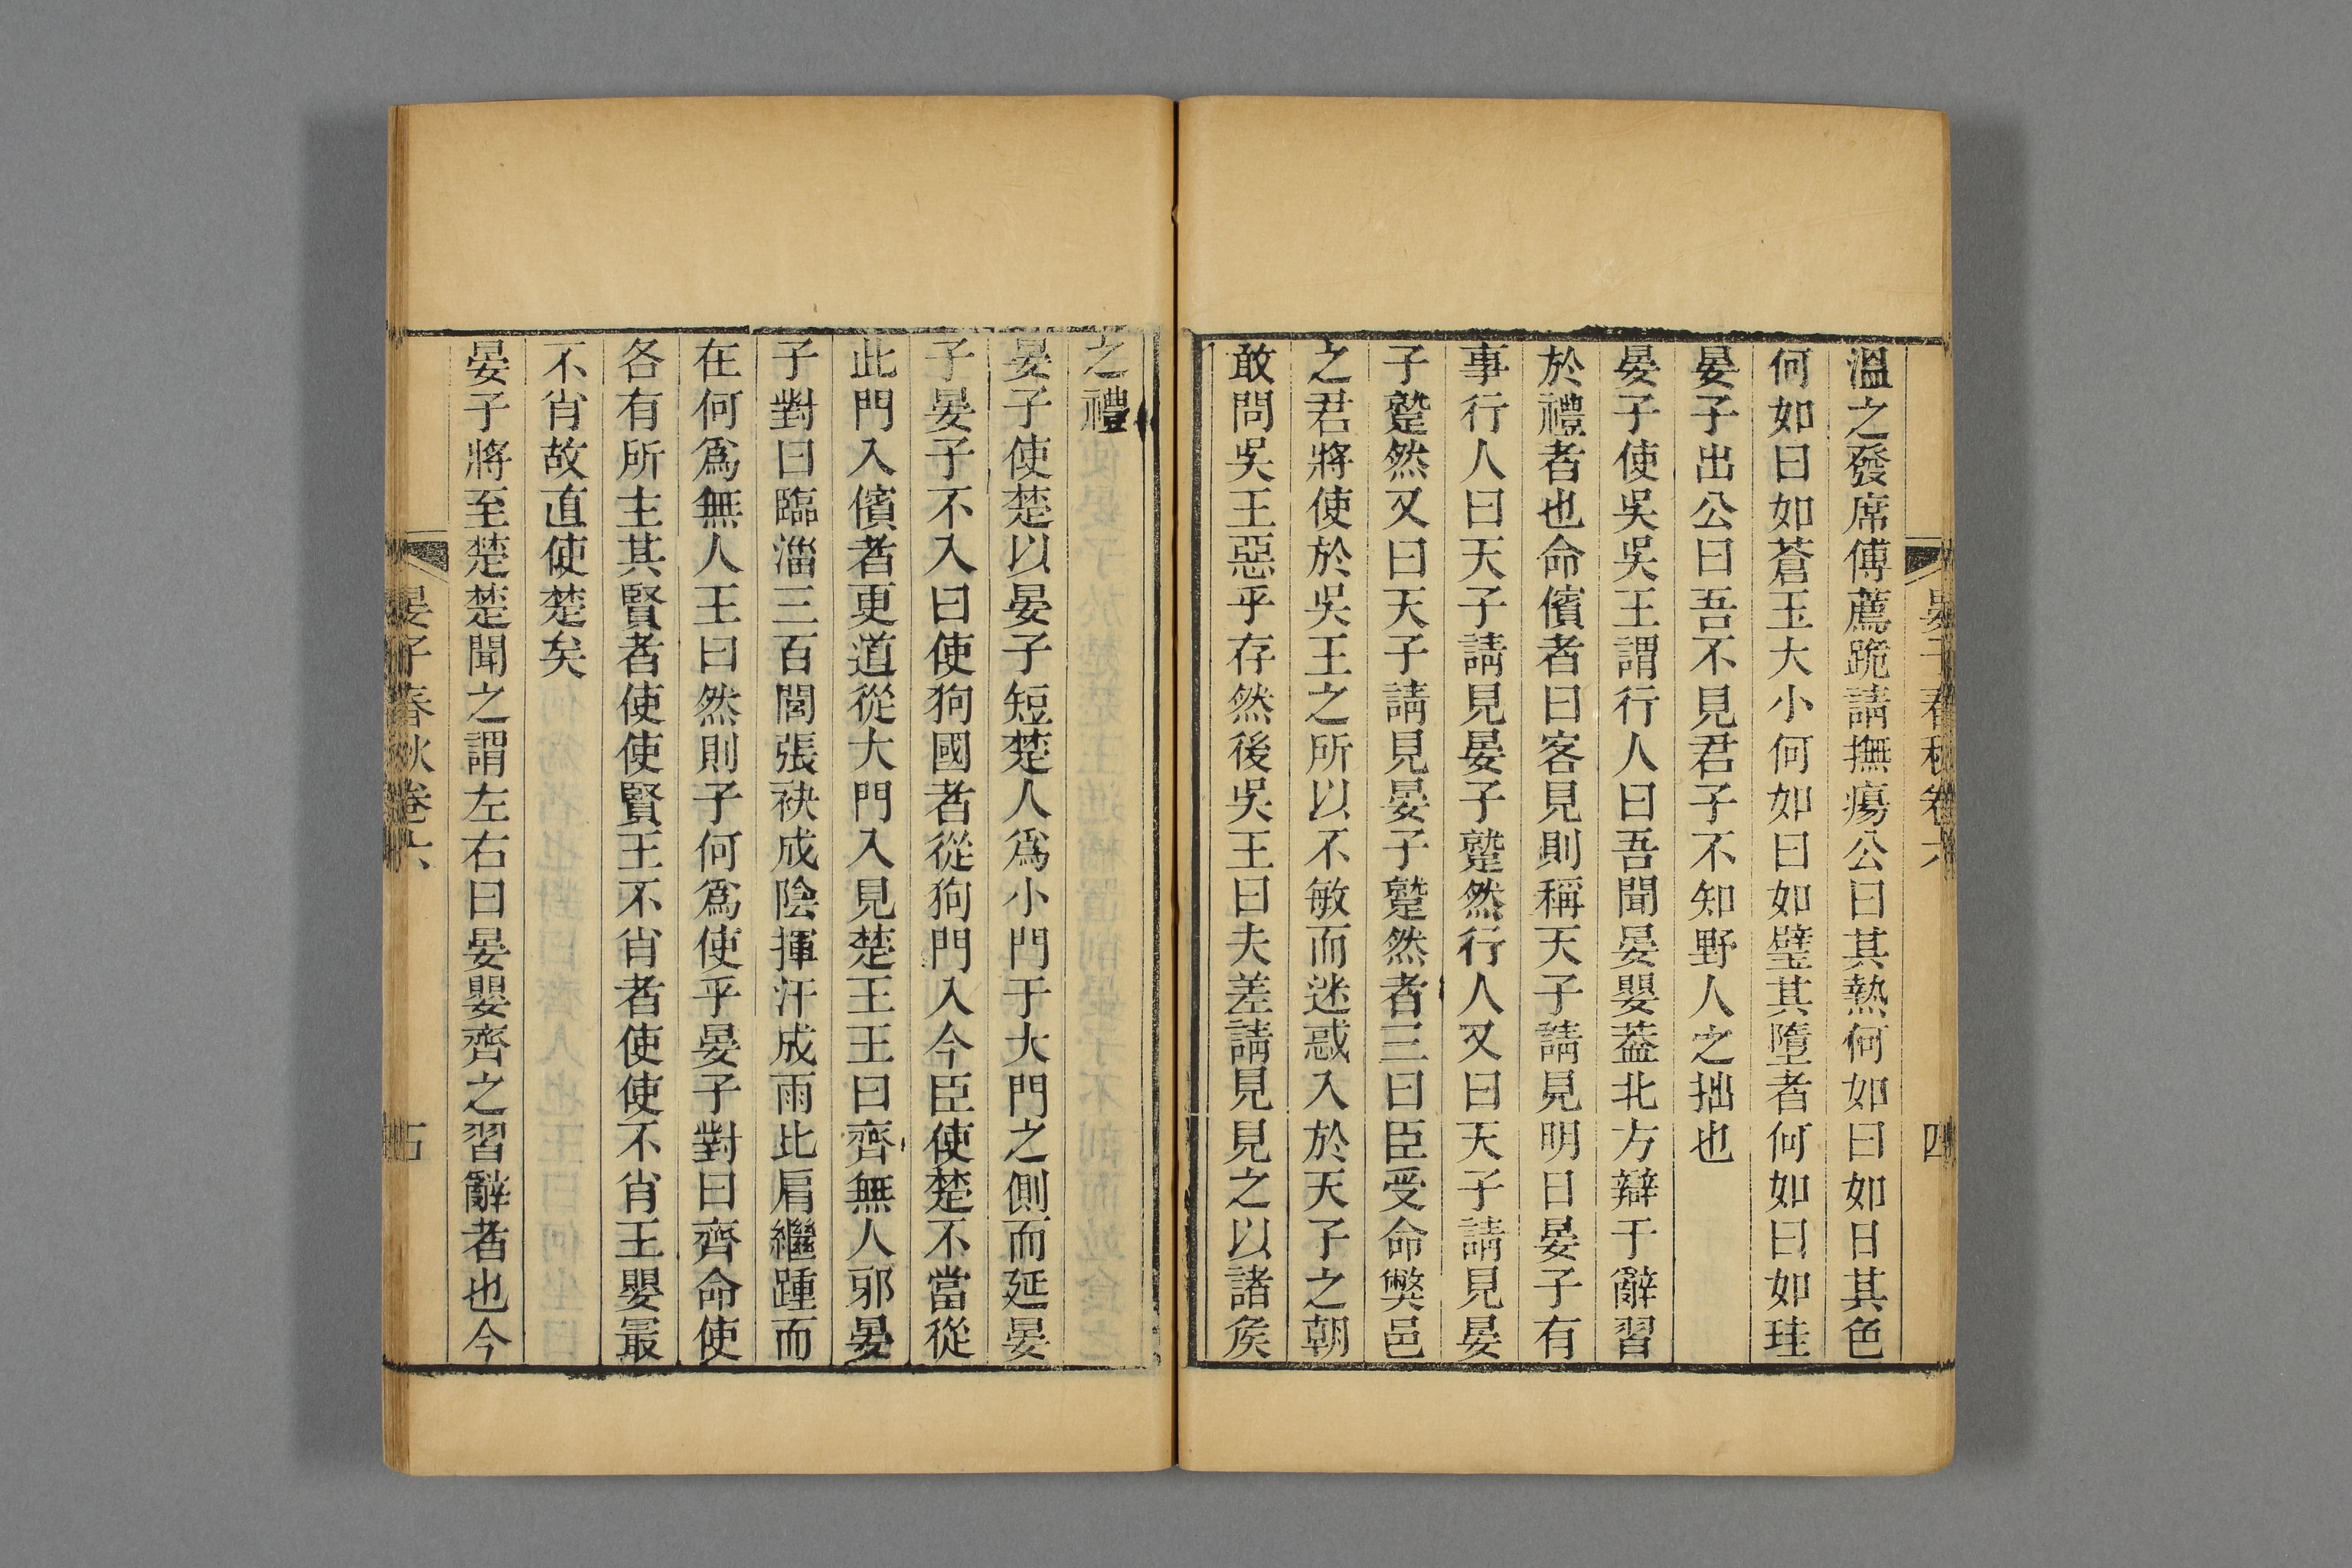 溫之發席傅薦跪請撫瘍公曰其熱何如曰如日其色
何如曰如蒼玉大小何如曰如璧其墮者何如曰如珪
晏子出公曰吾不見君子不知野人之拙也
晏子使吳吳王謂行人曰吾聞晏嬰葢北方辯于辭習
於禮者也命儐者曰客見則稱天子請見明日晏子有
事行人曰天子請見晏子蹵然行人又曰天子請見晏
子蹵然又曰天子請見晏子蹵然者三曰臣受命弊邑
之君將使於吳王之所以不敏而迷惑入於天子之朝
敢問吳王惡乎存然後吳王曰夫差請見見之以諸矦
之禮
晏子使楚以晏子短楚人爲小門于大門之側而延晏
子晏子不入曰使狗國者從狗門入今臣使楚不當從
此門入儐者更道從大門入見楚王王曰齊無人邪晏
子對曰臨淄三百閭張袂成陰揮汗成雨比肩繼踵而
在何爲無人王曰然則子何爲使乎晏子對曰齊命使
各有所主其賢者使使賢王不肖者使使不肖王嬰最
不肖故直使楚矣
晏子將至楚楚聞之謂左右曰晏嬰齊之習辭者也今
晏子春秋卷六